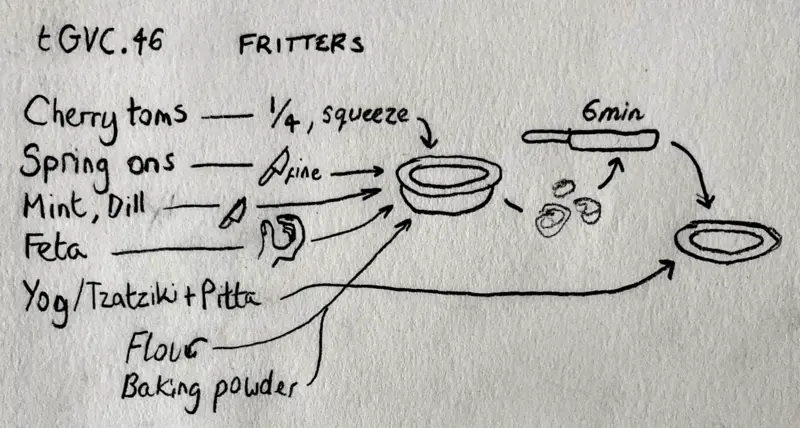 tGVC.46 FRITTERS
Cherry toms 1/4, squeeze
6min
Spring ons fine
Mint, Dill
Feta
Yog/Tzatziki + Pitta
Flour
Baking powder